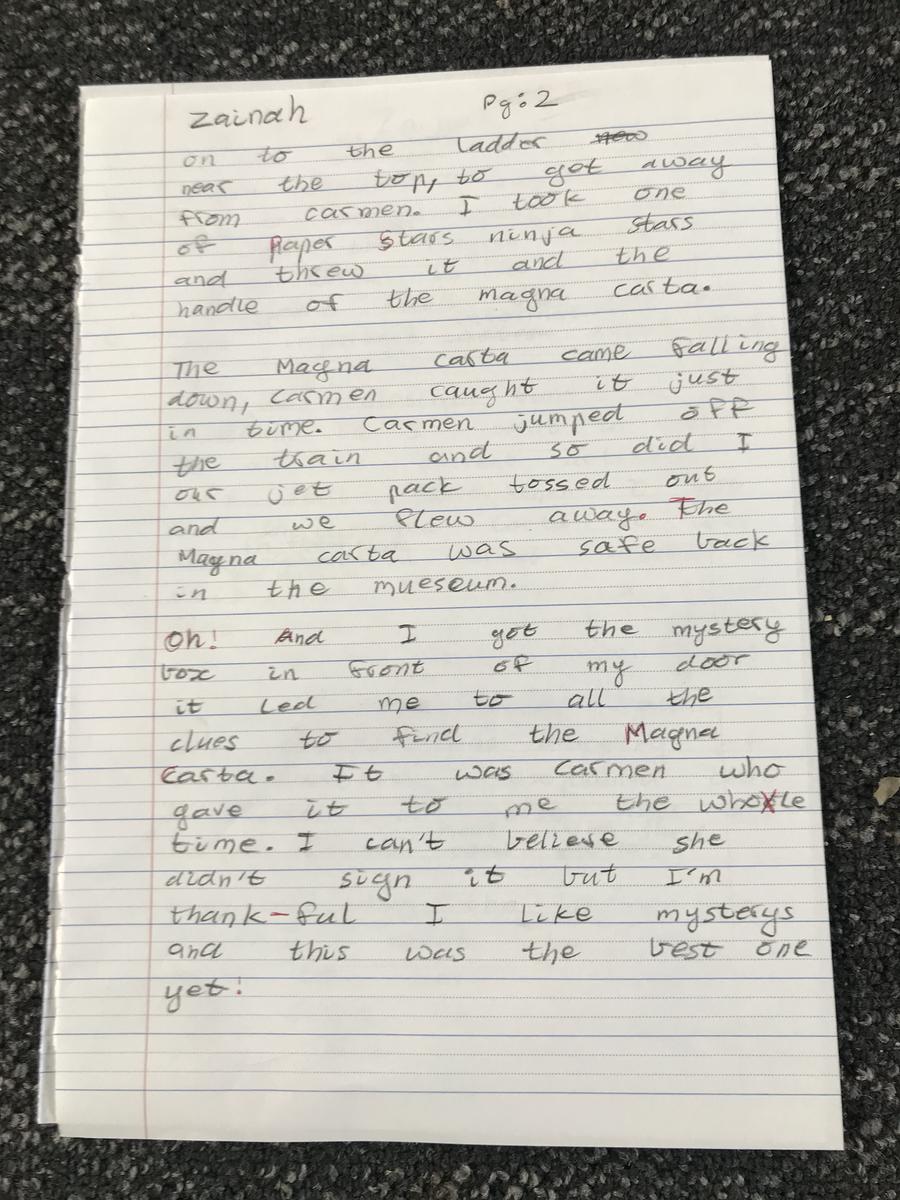 Zainah Pg:2
on to the ladder
near the top, to got away
from carmen. I took one
of Paper Stars ninja stars
and threw it and the
handle of the magna carta.
The Magna carta came falling
down, Carmen caught it just
in time. Carmen jumped off
the train and so did I
our jet pack tossed out
and we flew away. The
Magna carta was safe back
in the mueseum.
Oh! And I got the mystery
box in front of my door
it led me to all the
clues to find the Magna
Carta. It was Carmen who
gave it to me the whole
time. I can't believe she
didn't sign it but I'm
thank-ful I like mysterys
and this was the best one
yet!